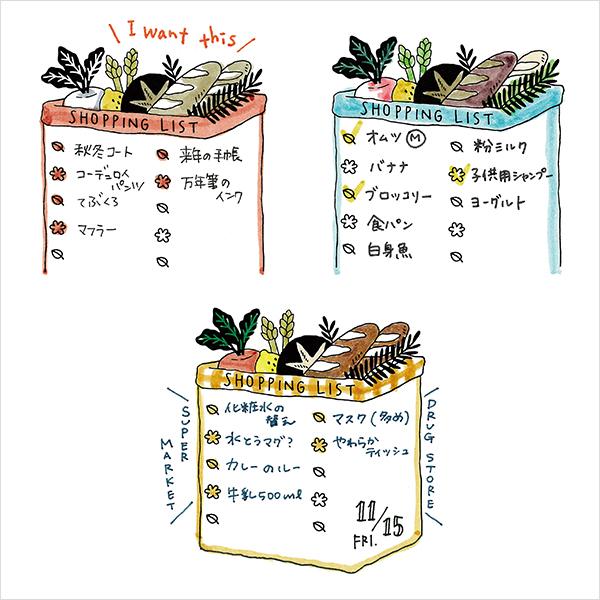 I want this
SHOPPING LIST
秋冬コート
コーデュロイ
パンツ
てぶくろ
マフラー
来年の手帳
万年筆の
インク
SHOPPING LIST
オムツ Ⓜ
バナナ
ブロッコリー
食パン
白身魚
粉ミルク
子供用シャンプー
ヨーグルト
SUPER
MARKET
SHOPPING LIST
化粧水の
替え
水とうマグ?
カレーのルー
牛乳500ml
マスク(多め)
やわらか
ティッシュ
11/15
FRI.
DRUG STORE